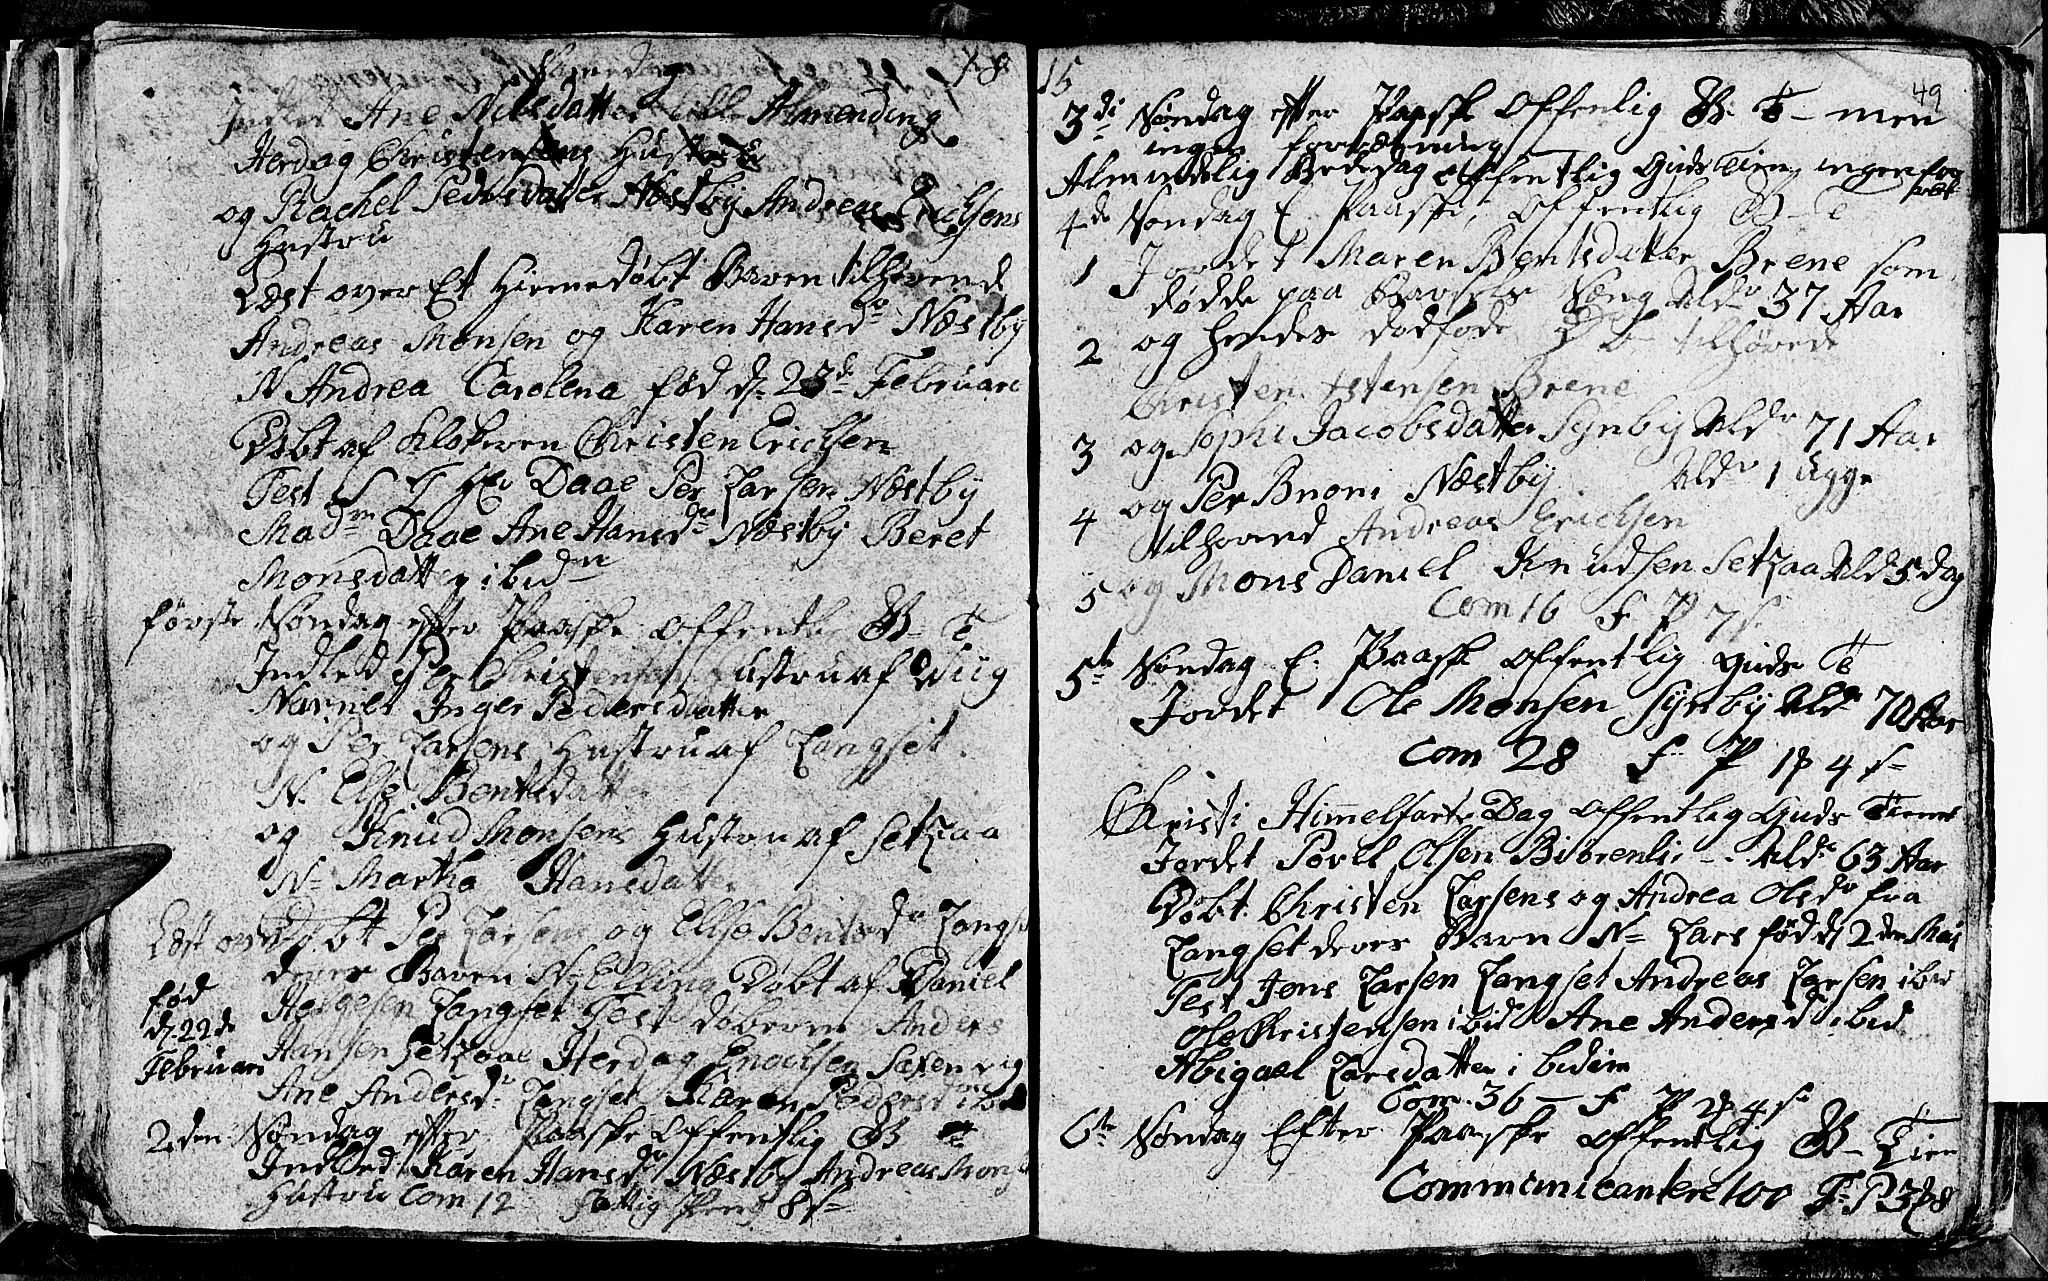 48
Indled Ane Nilsdatter lille Almending
Herdag Christensens Hustru
og Rachel Pedersdatter Næstby Andreas Erichsens
Hustru
Læst over Et Hiemedøbt Baren tilhørende
Andreas Monsen og Karen Hansdr Næstby
N Andrea Carolena fød d. 23de Februari
Døbt af Klokeren Christen Erichsen
Test S T Hr Daae Per Larsen Næstby
Madm Daae Ane Hansdr Næstby Beret
Monsdatter ibidn
første Søndag efter Paaske offentl. G- T
Indled Per Christensens Hustru af
Navnet Inger Pedersdatter
og Per Larsens Hustru af Langset
N. Else Bentsdatter
og Knud Monsens Hustru af Setraa
N- Martha Hansdatter
Læst over døbt Per Larsens og Else Bentsdr Langset
deres Baren N- Elling Døbt af Daniel
fød
d. 22de
Februari
Helgesen Langset Test døberen Anders
Hansen Setraae Herdag Enochsen Saxenvig
Ane Andersdr Langset Karen Pedersdr ibid
2den Søndag efter Paaske offentlig G T
Indled Karen Hansdr Næstby Andreas Mons
Hustru Com 12 Fattig Peng 8 s-
15
49
3di Søndag efter Paaske offenlig G. T- men
ingen forretning
Almindelig Bededag offentlig Guds tien, ingen for
ret-
4de Søndag E. Paaske, offentlig G- T
1 Jordet Maren Bentsdatter Brene som
døde paa Barsels Seng Aldr 37 Aar
2 og hendes dødføde tilhørede
Christen Estensen Brene
3 og Sophi Jacobsdatter Synby Aldr 71 Aar
4 og Per Bnoni Næstby Aldr 1 Ugge
tilhørend Andreas Erichsen
5 og Mons Daniel Knudsen Setraa Ald 5 dag
Com 16 F P 7 s.
5te Søndag E. Paaske offentlig Guds T
Jordet Ole Monsen Synby Aldr 70 Aar
Com 28 F P 1 4 s-
Christi Himmelfarts Dag offentlig Guds Tienest
Jordet Povel Olsen Biörenli - Aldr 63 Aar
Døbt Christen Larsens og Andrea Olsdr fra
Langset deres Barn N- Lars fød d 2den Maj
Test Jens Larsen Langset Andreas Larsen ibid
Ole Christensen ibid Ane Andersd ibid
Abigael Larsdatter ibidem
Com. 36 - F P 4 s
6te Søndag Efter Paaske offentlig G- Tien
Communicantere 100 F- P 3 8